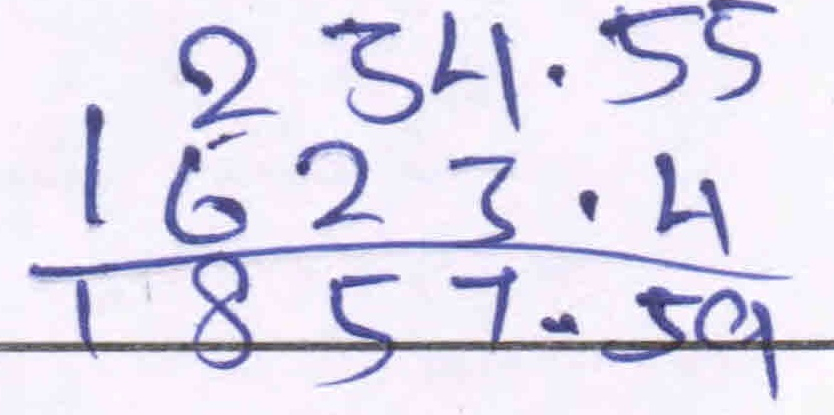 234.55
1623.4
1857.59